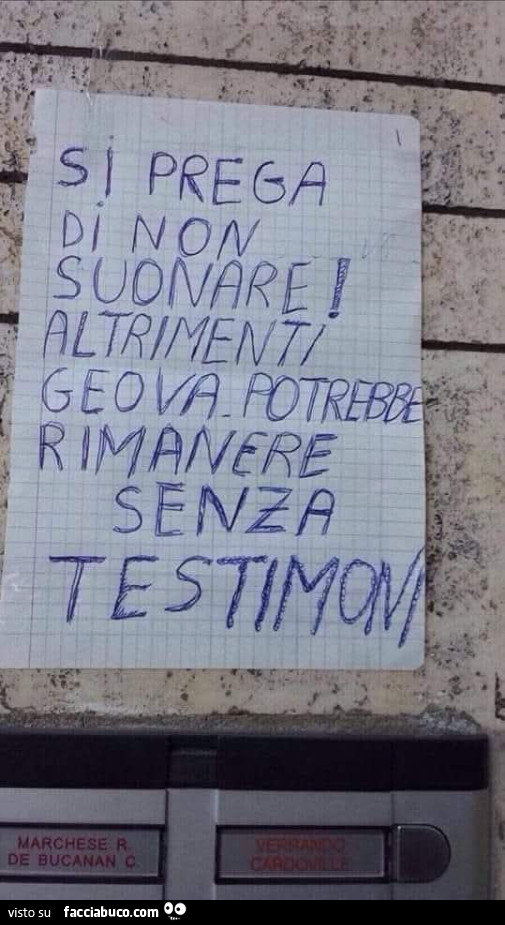 SI PREGA
DI NON
SUONARE!
ALTRIMENTI
GEOVA. POTREBBE
RIMANERE
SENZA
TESTIMONI
MARCHESE R.
DE BUCANAN C.
VERRANDO
CARDOVILLE
visto su facciabuco.com